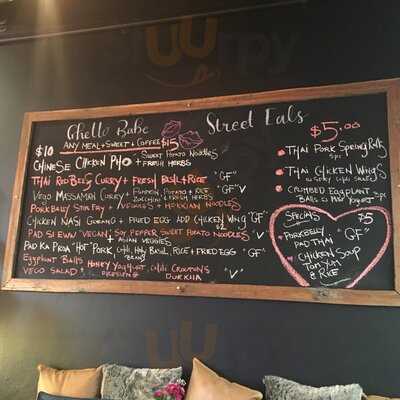 Ghetto Babe Street Eats
ANY MEAL + SWEET + COFFEE $15
$10
CHINESE CHICKEN PHO + SWEET POTATO NOODLES + FRESH HERBS
THAI RED BEEF CURRY + FRESH BASIL + RICE "GF"
VEGO MASSAMAN CURRY + PUMPKIN POTATO + RICE ZUCCHINI + FRESH HERBS "GF" V
PORK BELLY STIR FRY + VEGGIES + HOKKIEN NOODLES
CHICKEN NASI GORANG + FRIED EGG ADD CHICKEN WING $2 "GF"
PAD SI EWW VEGAN, SOY PEPPER SWEET POTATO NOODLES + ASIAN VEGGIES "V"
PAD KA PROA "HOT" PORK, CHILLI, HOLY BASIL, RICE + FRIED EGG "GF"
EGGPLANT BALLS HONEY YOGHURT, CHILLI CROUTONS
VEGO SALAD DRESSING DUKKHA "V"
$5.00
THAI PORK SPRING ROLL
THAI CHICKEN WINGS
CRUMBED EGGPLANT
BALLS
SPECIALS $5
PORKBELLY
PAD THAI "GF"
CHICKEN SOUP
TOM YUM
& RICE